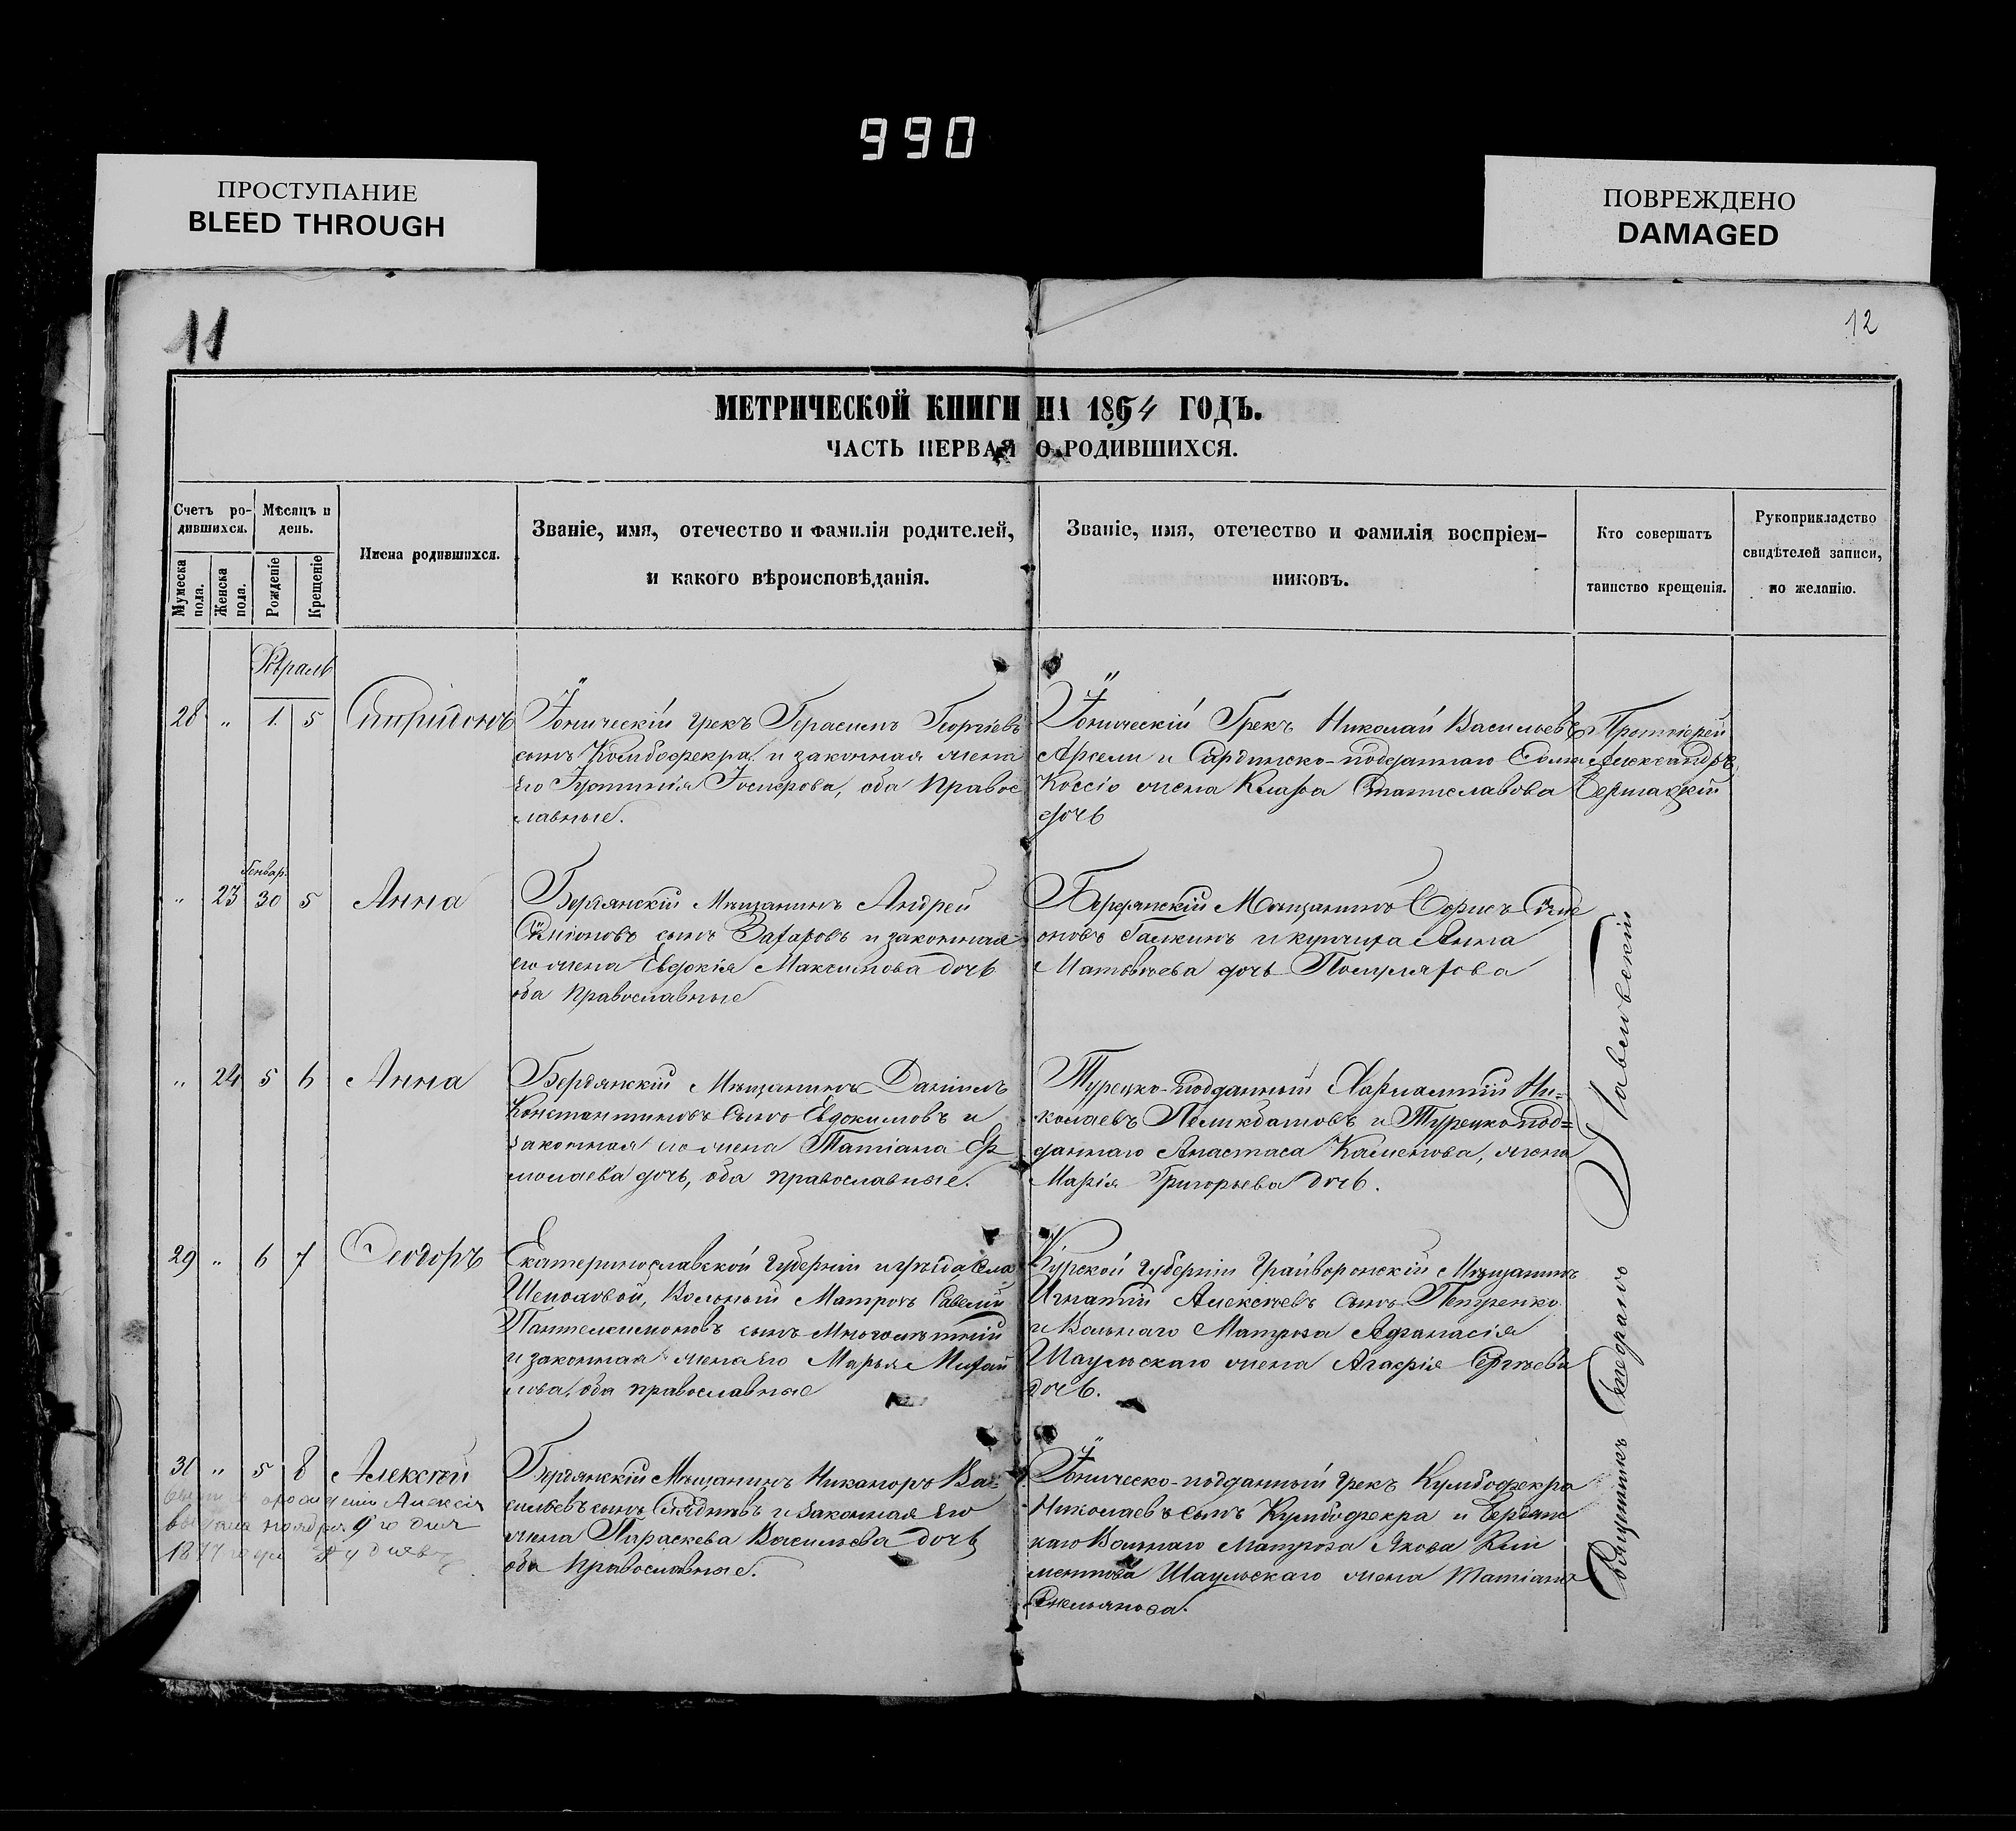 990
ПРОСТУПАНИЕ
BLEED THROUGH
ПОВРЕЖДЕНО
DAMAGED
11
12
МЕТРИЧЕСКОЙ КНИГИ НА 1864 ГОДЪ.
ЧАСТЬ ПЕРВАЯ О РОДИВШИХСЯ.
Счетъ ро-
дившихся.
Мужеска
пола.
Женска
пола.
Мѣсяцъ и
день.
Рожденіе
Крещеніе
Имена родившихся.
Званіе, имя, отечество и фамилія родителей,
и какого вѣроисповѣданія.
Званіе, имя, отечество и фамилія воспріем-
никовъ.
Кто совершатъ
таинство крещенія.
Рукоприкладство
свидѣтелей записи,
по желанію.
28 „ 1. 5 Спиридонъ
Іоническій грекъ Герасимъ Георгіевъ
сынъ Комбофекра, и законная жена
его, оба Правос
лавные.
Іоническій Грекъ Николай Васильевъ
Арсели и Сардинско-подданнаго
Коссіо жена Клара Станиславова
дочь
Протоіерей
Александръ
„ 23 Генвар. 30 5 Анна
Бердянскій Мѣщанинъ Андрей
Симіоновъ сынъ Захаровъ и законная
его жена Евдокія Максимова дочь
оба православные
Бердянскій Мѣщанинъ Борисъ Симе
оновъ Галкинъ и купчиха Анна
Матвѣева дочь
„ 24 5 6 Анна
Бердянскій Мѣщанинъ Даніилъ
Константиновъ Сынъ Евдокимовъ и
законная его жена Татіана Ер
молаева дочь, оба православные.
Турецко-подданный Харлампій Ни=
колаевъ и Турецко под=
даннаго Анастаса, жена
Марія Григорьева дочь.
29 „ 6 7 Ѳеодоръ
Екатеринославской Губерніи и уѣзда, села
Вольный Матросъ Савелій
Пантелеимоновъ сынъ Многолѣтній
и законная жена его Марья Михай
лова, оба православные
Курской Губерніи Грайворонскій Мѣщанинъ
Игнатій Алексѣевъ сынъ Петренко
и Вольнаго Матроза Афанасія
Шаульскаго жена Агафія Сергѣева
дочь.
31 „ 5 8 Алексѣй
Алексія
ноября 9го дня
Бердянскій Мѣщанинъ Никаноръ Ва=
сильевъ сынъ и законная его
жена Параскева Васильева дочь
оба Православные.
Іоническо-подданный грекъ
Николаевъ сынъ Кумбофекра и Бердянс
каго Вольнаго Матроза Якова Кли
ментова Шаульскаго жена Татіана
Емельянова.
Священникъ Павловскій